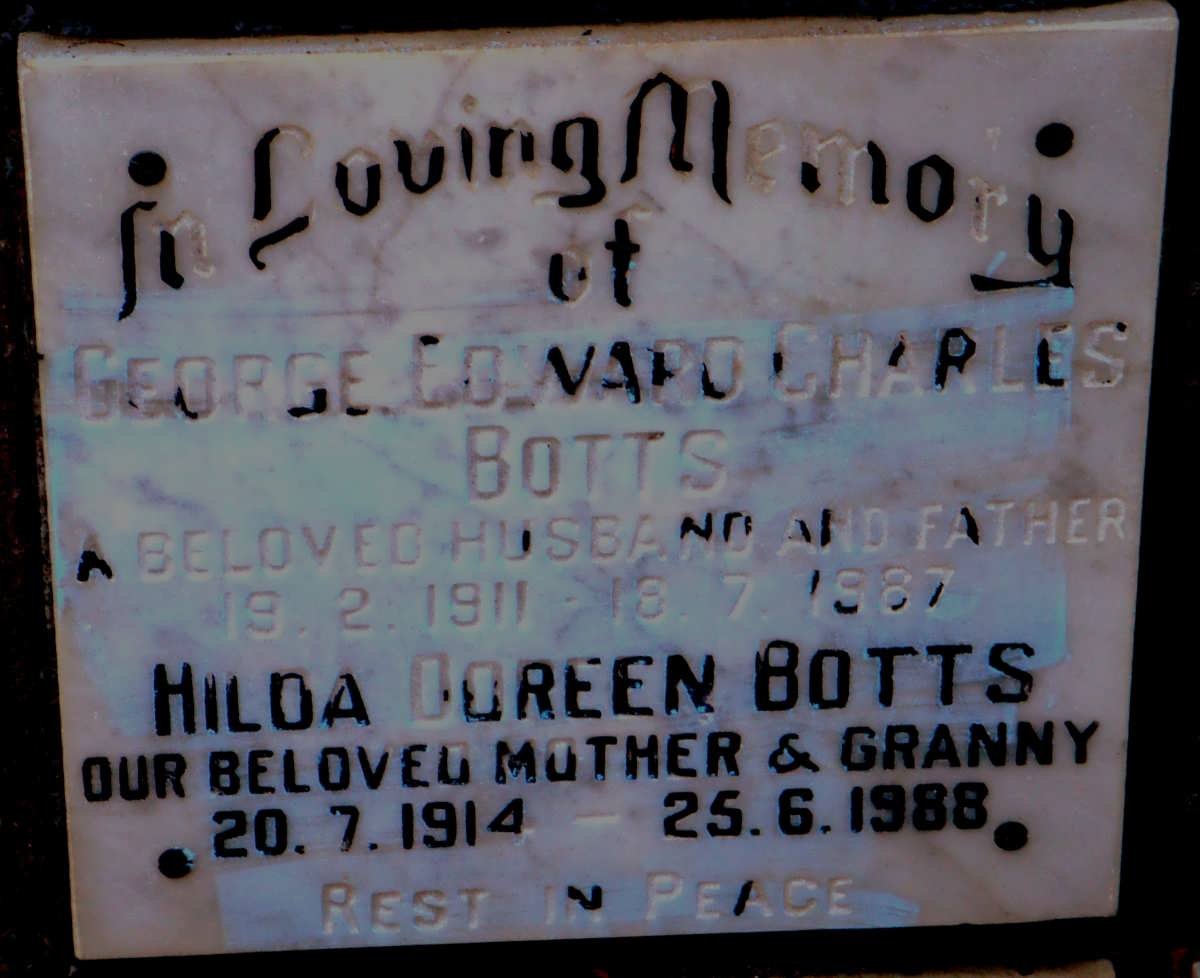 In Loving Memory
of
GEORGE EDWARD CHARLES
BOTTS
A BELOVED HUSBAND AND FATHER
19. 2. 1911 - 18. 7. 1987
HILDA DOREEN BOTTS
OUR BELOVED MOTHER & GRANNY
20. 7. 1914 - 25. 6. 1988
REST IN PEACE